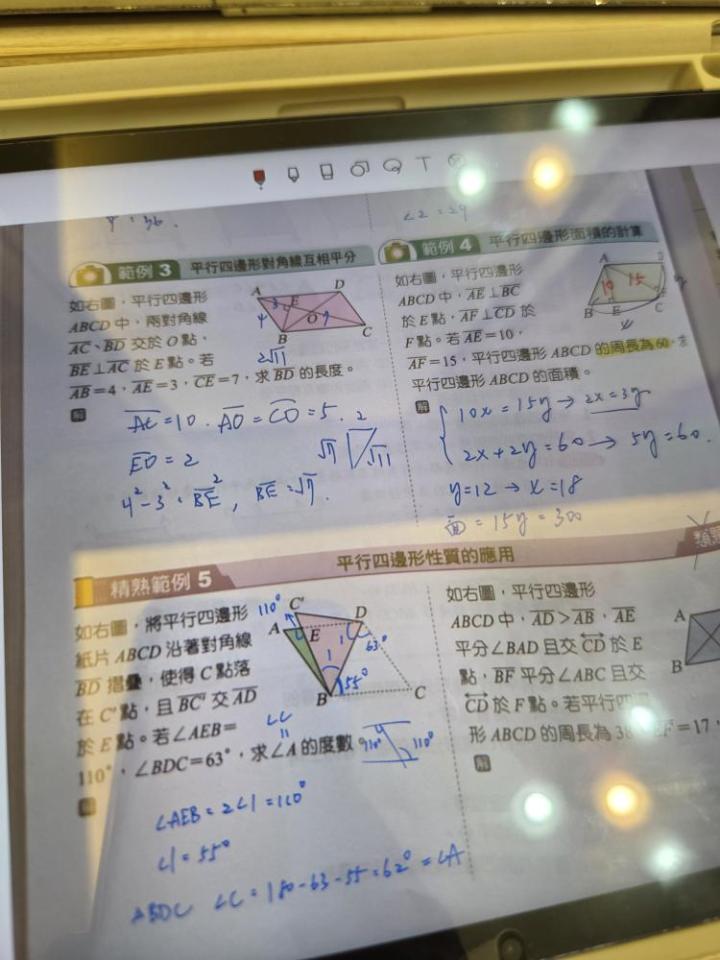 ∠2 = 29
範例 3 平行四邊形對角線互相平分
如右圖，平行四邊形
ABCD 中，兩對角線
AC、BD 交於 O 點，
BE⊥AC 於 E 點。若
AB=4，AE=3，CE=7，求 BD 的長度。
A
D
E
O
B
C
3
4
7
2√11
解
AC = 10 . AO = CO = 5 .
EO = 2
4² - 3² = BE² , BE = √7 .
2
√7
√11
範例 4 平行四邊形面積的計算
如右圖，平行四邊形
ABCD 中，AE⊥BC
於 E 點，AF⊥CD 於
F 點。若 AE=10，
AF=15，平行四邊形 ABCD 的周長為 60，求
平行四邊形 ABCD 的面積。
A
B
E
C
10
15
解
10x = 15y → 2x = 3y
2x + 2y = 60 → 5y = 60 .
y = 12 → x = 18
面 = 15y = 300
平行四邊形性質的應用
精熟範例 5
如右圖，將平行四邊形
紙片 ABCD 沿著對角線
BD 摺疊，使得 C 點落
在 C' 點，且 BC' 交 AD
於 E 點。若∠AEB=
110°，∠BDC=63°，求∠A 的度數。
110°
C'
A
E
D
63°
1
1
55°
B
C
∠C
=
110°
110°
解
∠AEB = 2∠1 = 110°
∠1 = 55°
△BDC ∠C = 180 - 63 - 55 = 62° = ∠A
如右圖，平行四邊形
ABCD 中，AD>AB，AE
平分∠BAD 且交 CD 於 E
點，BF 平分∠ABC 且交
CD 於 F 點。若平行四
形 ABCD 的周長為 38 =17，
A
B
解